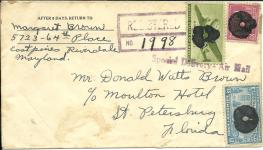 AFTER 5 DAYS, RETURN TO
Margaret Brown
5723-64th Place
East Pines Riverdale
Maryland.
REGISTERED
NO. 1998
Special Delivery - Air Mail
Mr. Donald Watts Brown
c/o Moulton Hotel
St. Petersburg
Florida